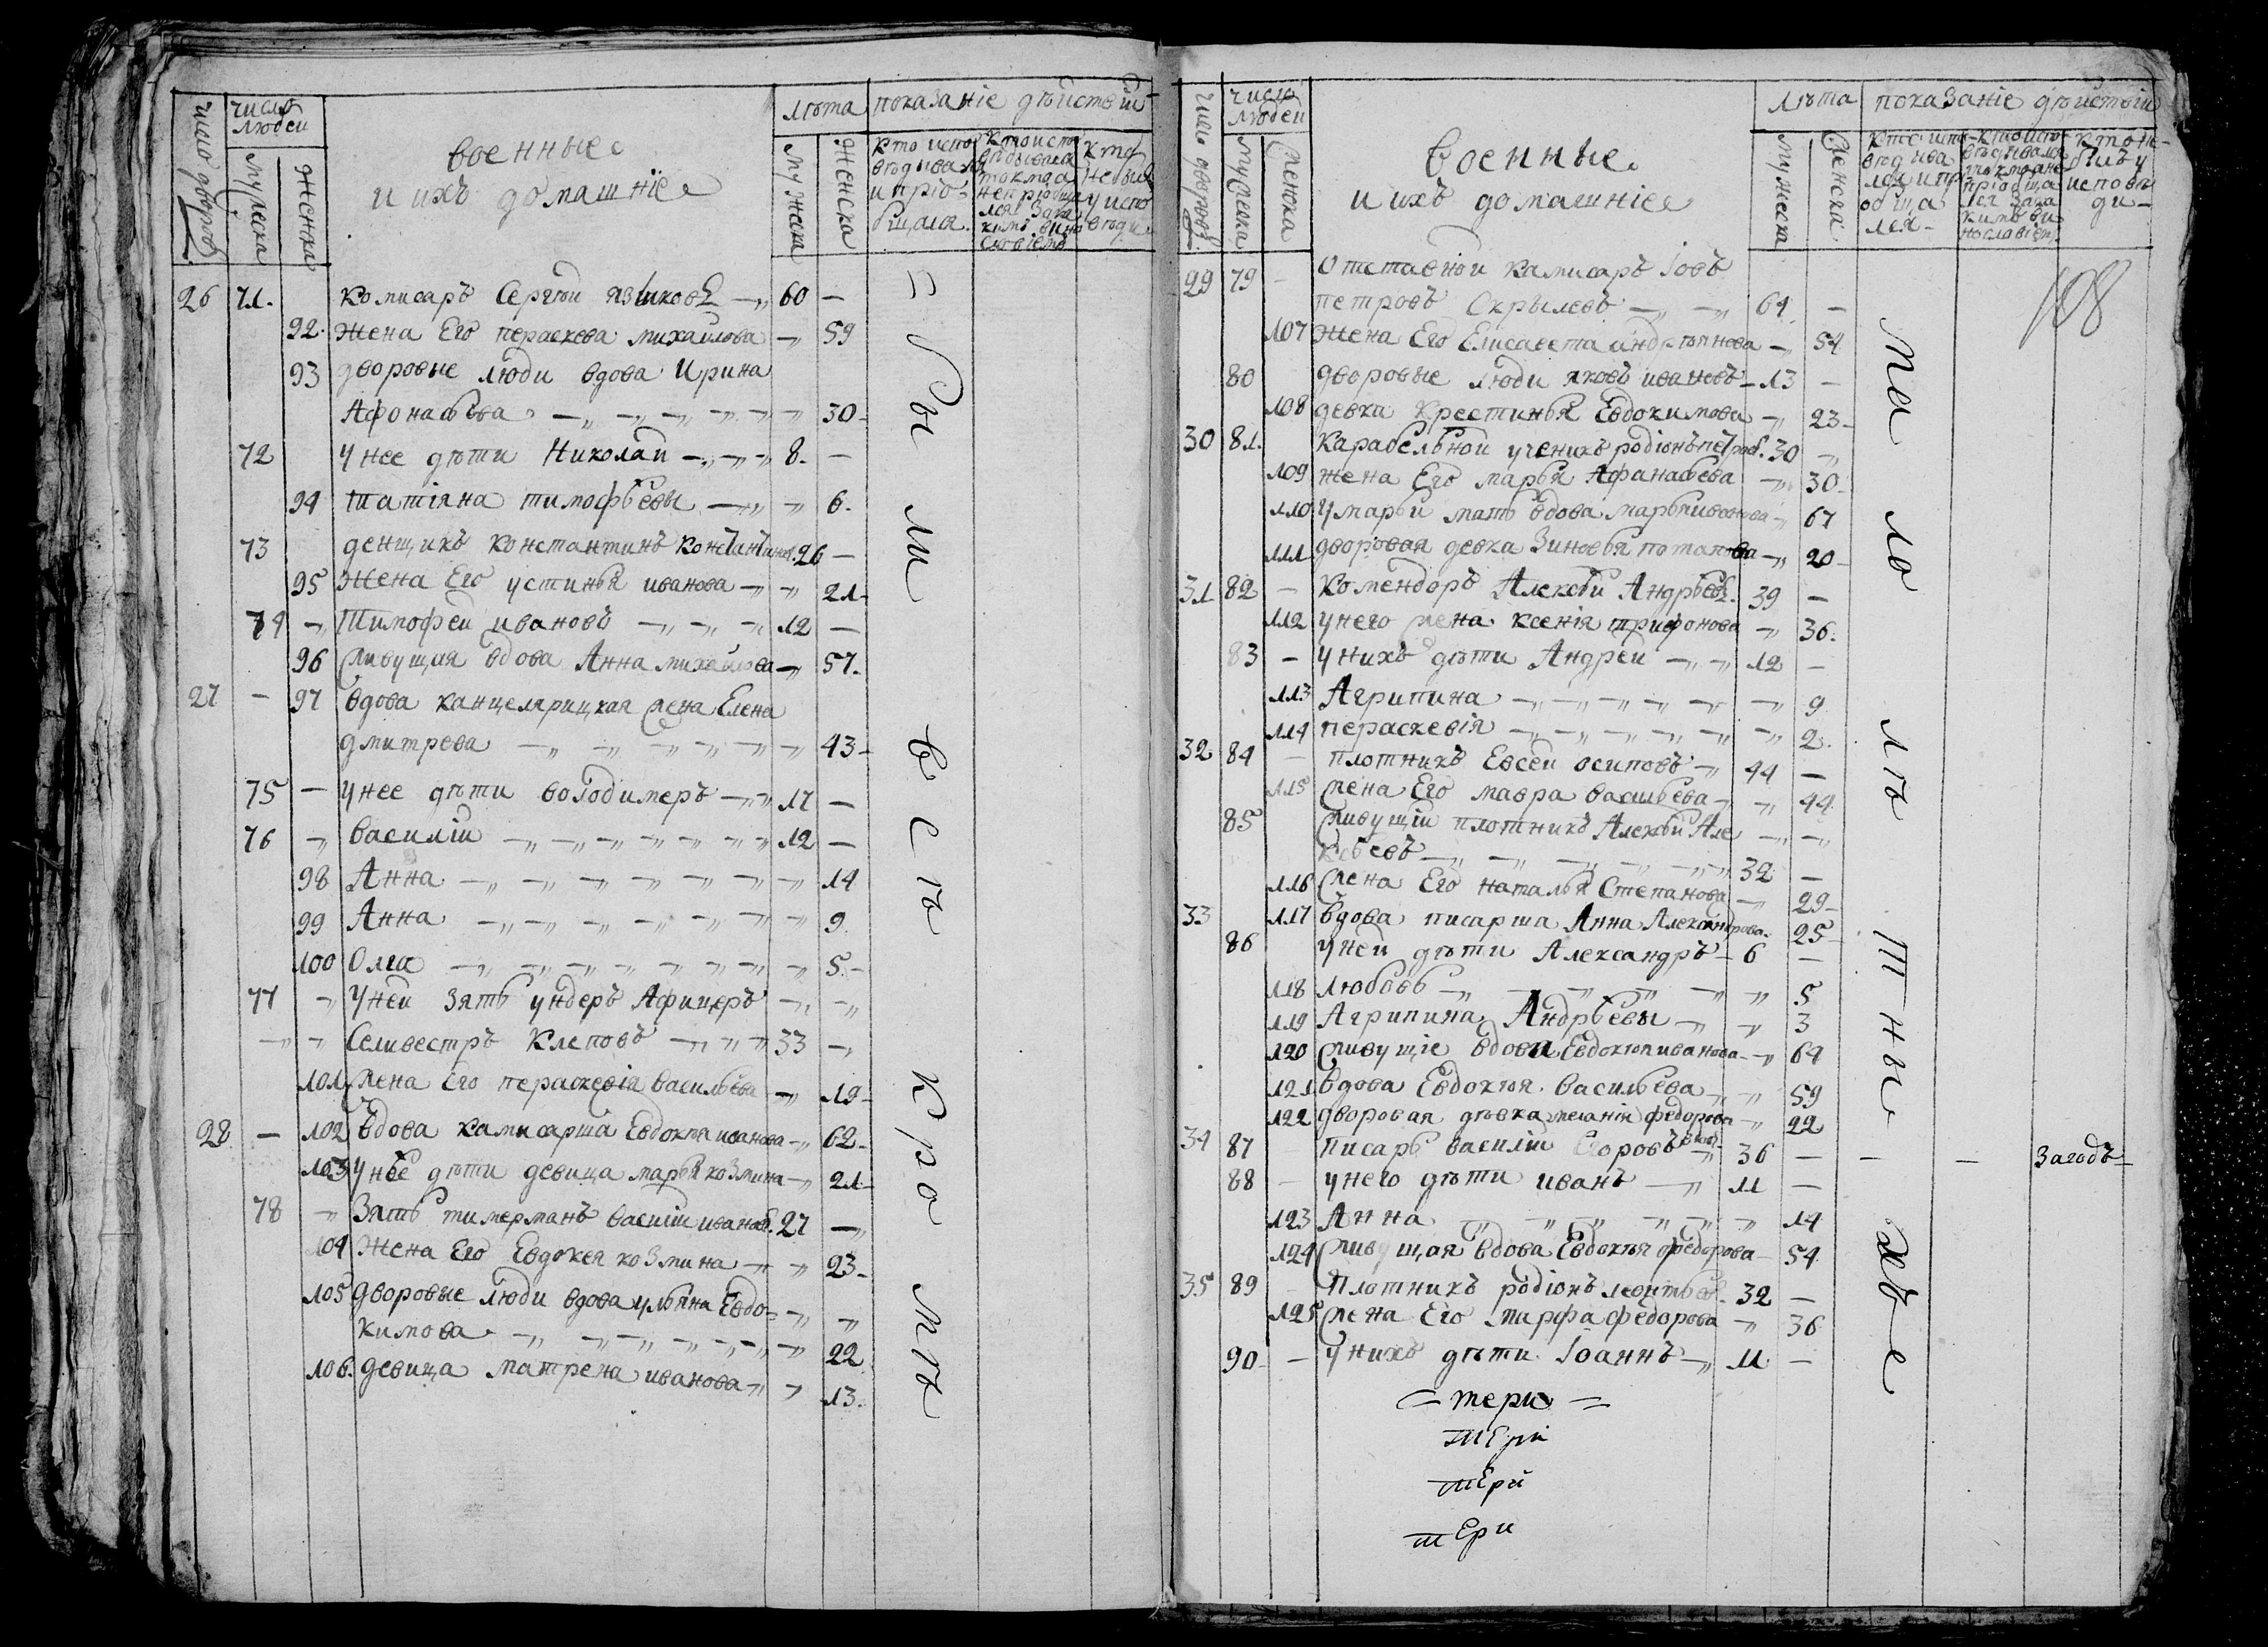 число дворовъ
число людей
мужеска
женска
военные
и ихъ домашніе
лѣта
мужеска
женска
показаніе дѣйствій
кто исповѣдывался и пріобщался
кто исповѣдывался токмо а не пріобщался и за какимъ винословіемъ
кто не былъ у исповѣди
26 71. комисаръ Сергѣй языковъ 60 —
92. жена Его пераскева михаилова 59
93 дворовые люди вдова Ирина
Афонасьева 30
72 у нее дѣти Николай 8. —
94 татіяна тимофѣевы 6.
73 денщикъ константинъ константинов. 26 —
95 жена Его устинья иванова 21
74 Тимофей ивановъ 12 —
96 живущая вдова Анна михайлова 57.
27 — 97 вдова канцелярицкая жена Елена
дмитрева 43
75 — у нее дѣти володимеръ 17 —
76 василій 12 —
98 Анна 14
99 Анна 9.
100 Олга 5.
77 у ней зять ундеръ Афицеръ
Селивестръ Клеповъ 33
101 жена Его пераскевія васильева 19
28 — 102 вдова камисарша Евдокѣя иванова 62
103 у нѣе дѣти девица марья козмина 21
78 Зять тимерманъ василіи иванов. 27
104 жена Его Евдокея козмина 23
105 дворовые люди вдова ульяна Евдо-
кимова 22
106. девица матрена иванова 13.
= были всѣ кромѣ
число дворовъ
число людей
мужеска
женска
военные
и ихъ домашніе
лѣта
мужеска
женска
показаніе дѣйствій
кто исповѣдывался и пріобщался
кто исповѣдывался токмо не пріобщался за какимъ винословіем
кто не былъ у исповѣди
108
29 79 — Отставной камисаръ Іовъ
петровъ Скрылевъ 64 —
107 жена Его Елисавета андрѣянова 54
80 дворовые люди яковъ ивановъ 13 —
108 девка крестинья Евдокимова 23
30 81. Карабельной ученикъ родіонъ петров. 30
109 жена Его марья Афанасьева 30
110 у марьи мать вдова марья ивановна 67
111 дворовая девка Зиновья потапова 20
31 82 — комендоръ Алексѣй Андрѣевъ. 39 —
112 у него жена ксенія трифонова 36.
83 — у нихъ дѣти Андрей 12 —
113 Агрипина 9
114 пераскевія 2.
32 84 — плотникъ Евсей осиповъ 44 —
115 жена Его мавра васильева 44
85 живущій плотникъ Алексѣй Але
ксѣевъ 32 —
116 жена Его наталья Степанова 29
33 117 вдова писарша Анна Александрова. 25
86 у ней дѣти Александръ 6 —
118 любовь 5
119 Агрипина Андрѣевы 3
120 живущіе вдова Евдокѣя иванова 64
121 вдова Евдокѣя васильева 59
122 дворовая дѣвка меланія федорова 22
34 87 писарь василіи Егоровъ 36 — — — Загодъ
88 — у него дѣти иванъ 11 —
123 Анна 14
124 живущая вдова Евдокѣя федорова 54
35 89 Плотникъ родіонъ леонтьев. 32 —
125 жена Его марфа федорова 36
90 — у нихъ дѣти Іоаннъ 11 —
малолѣтныхъ